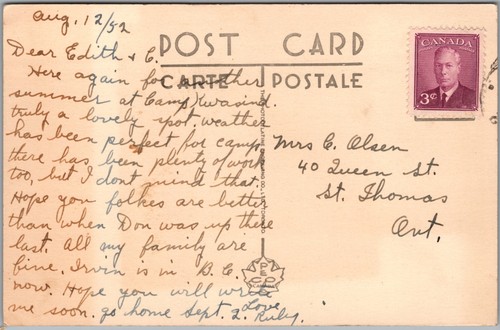 Aug. 12/52
POST CARD
CARTE POSTALE
CANADA
3¢
Dear Edith & C.
Here again for another
summer at Camp Kwasind.
truly a lovely spot. weather
has been perfect for camp
there has been plenty of work
too, but I dont mind that.
Hope you folkes are better
than when Don was up there
last. All my family are
fine. Irvin is in B.C.
now. Hope you will write
me soon. go home Sept. 2.
Love
Ruby.
Mrs C. Olsen
40 Queen St.
St. Thomas
Ont.